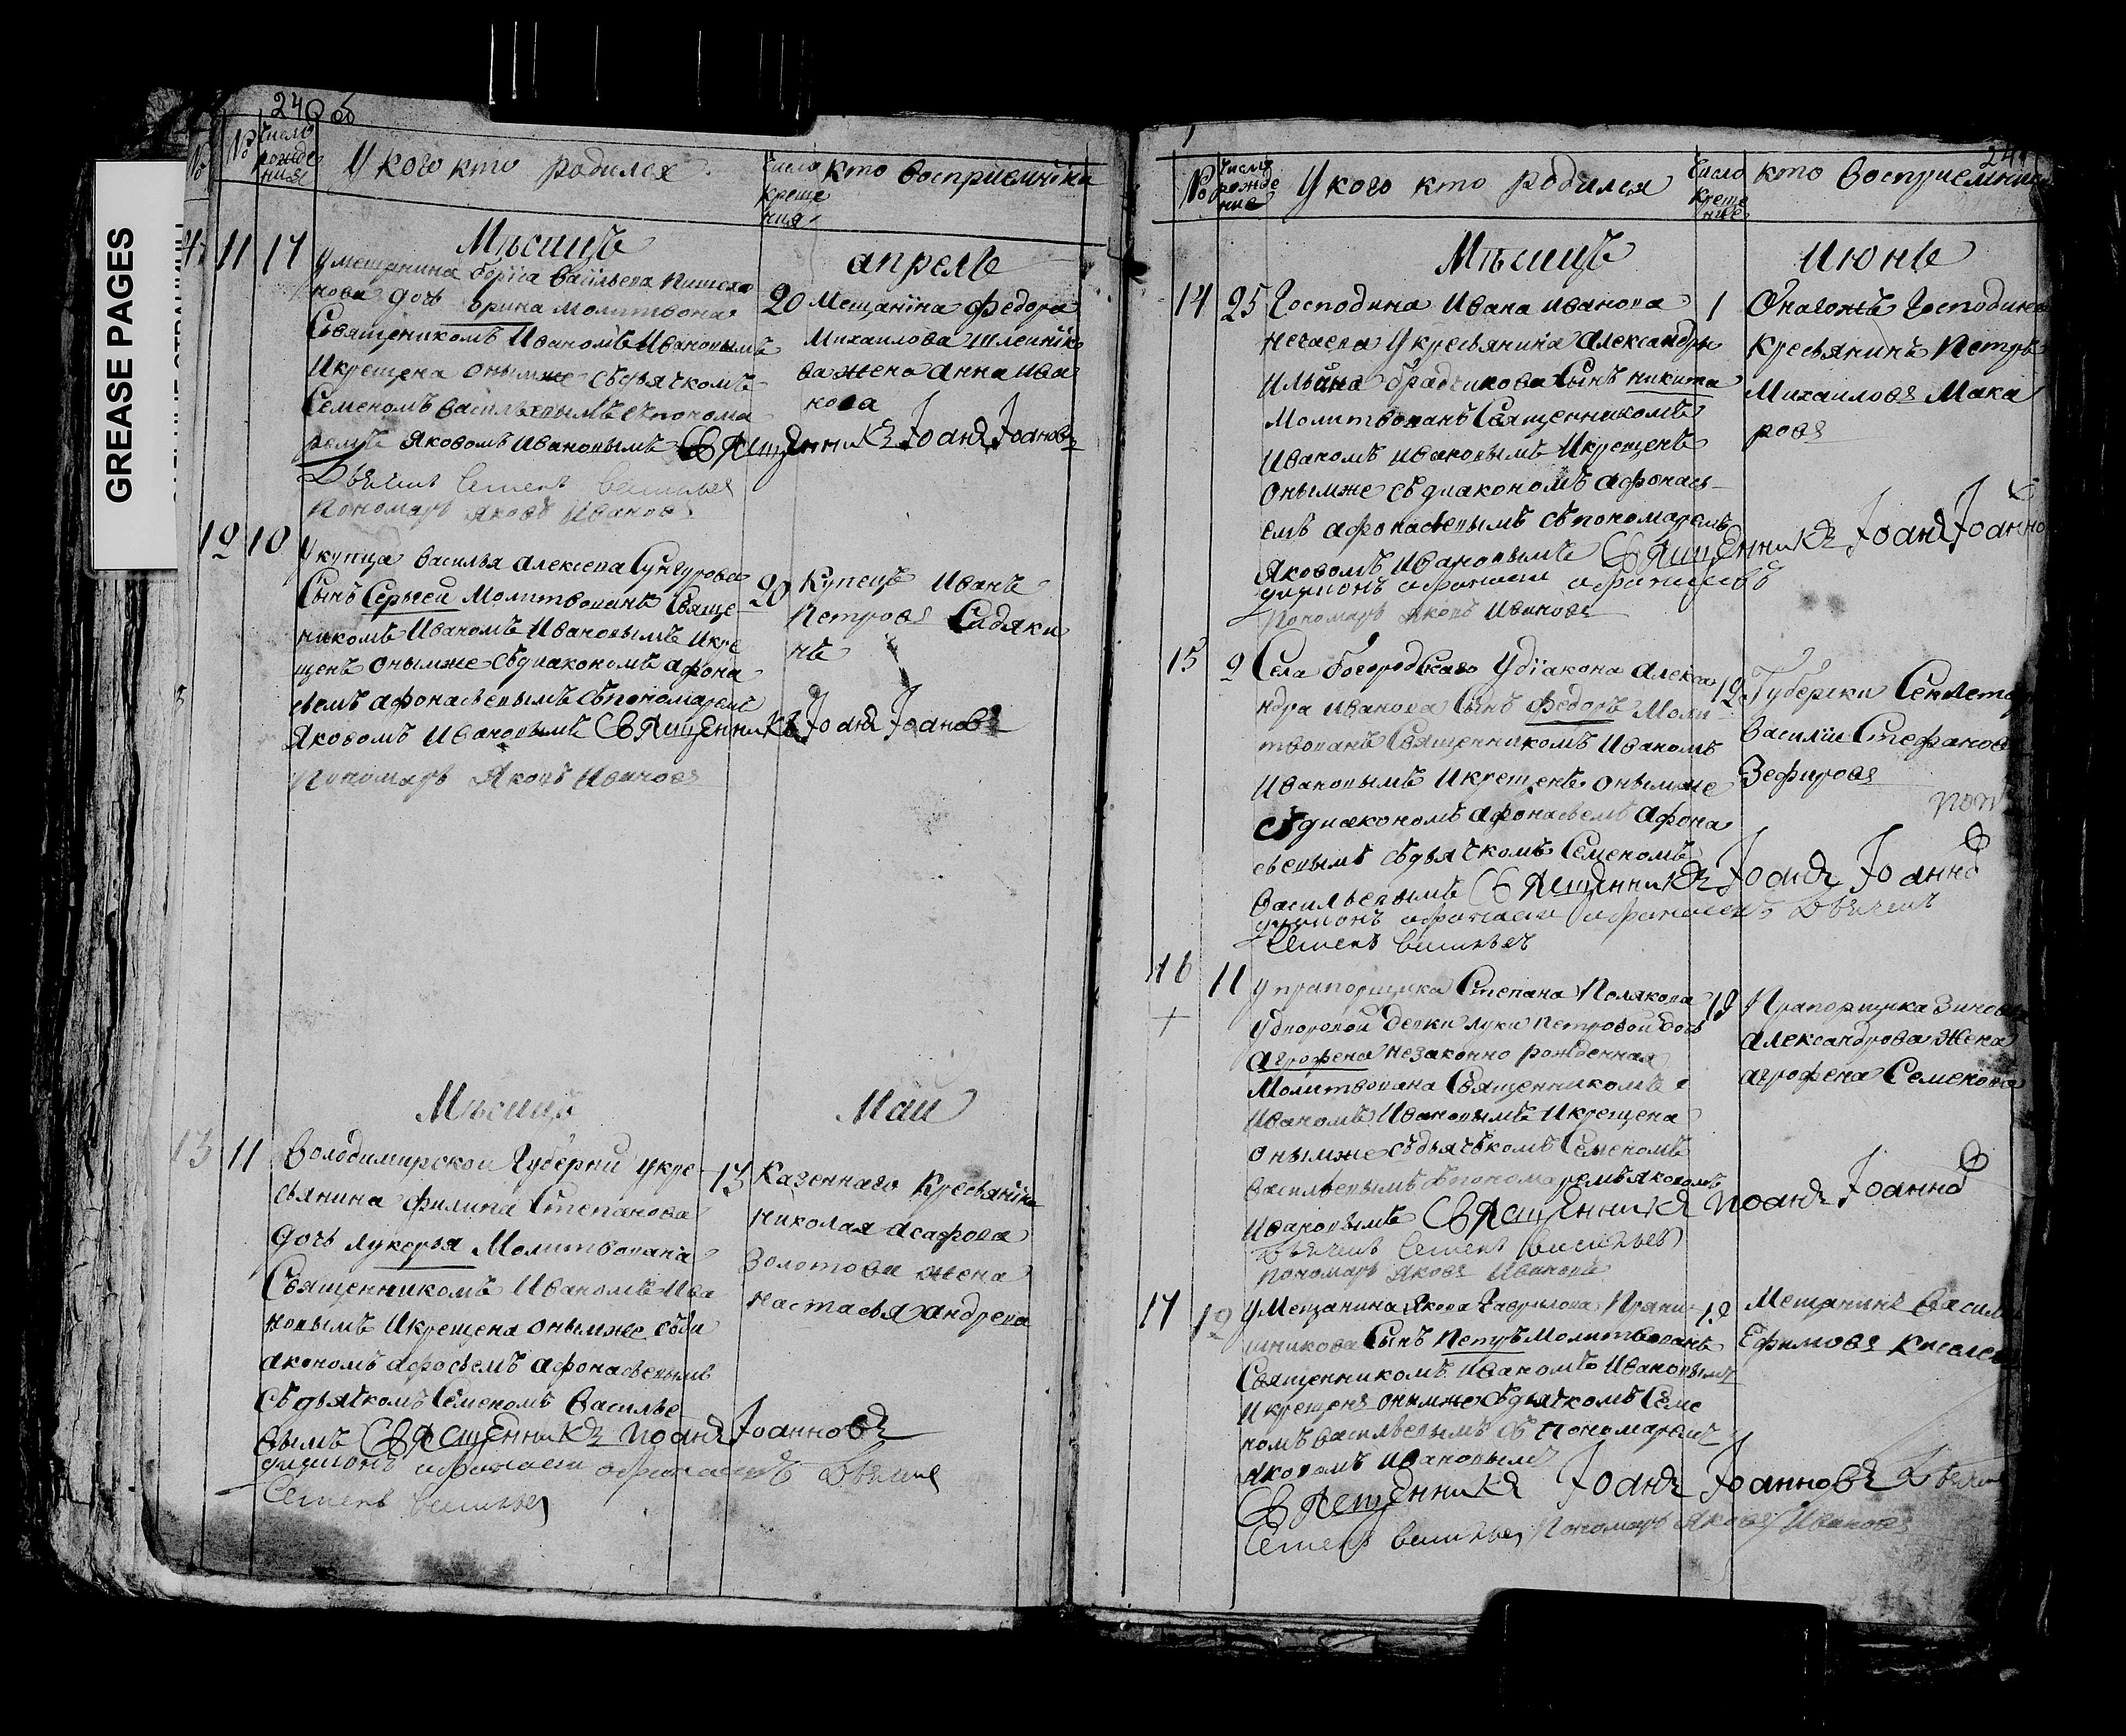 GREASE PAGES
240 об
№ Число рожде ния
У кого кто родился
Число креще ния
кто восприемники
Мѣсицъ апреле
11 17 20
У мещанина бориса васильева
нова дочь Ирина молитвона
Священикомъ Иваномъ Ивановымъ
И крещена онымже съдьячкомъ
Семеномъ васильевымъ спонома
ремъ Яковомъ Ивановымъ Священникъ Іоанъ Іоановъ
Дьячикъ Семенъ васильев
Пономарь Яковъ Ивановъ
Мещанина федора
Михаилова шлеинико
ва жена анна ива
нова
12 10 20
У купца василья алексева Сунгурова
Сынъ Сергеи Молитвованъ Свяще
никомъ Иваномъ Ивановымъ икре
щенъ онымже съдиакономъ афона
сьемъ афонасьевымъ съпономаремъ
Яковомъ Ивановымъ Священникъ Іоанъ Іоановъ
Пономарь Яковъ Ивановъ
Купецъ Иванъ
Петровъ Садяки
нъ
Мѣсицъ Маи
13 11 13
Володимирскои Губерни укре
сьянина филипа Степанова
дочь лукерья Молитвована
Священникомъ Иваномъ Ива
новымъ Икрещена онымже съди
акономъ афосьемъ афонасьевымъ
Съдьячкомъ Семеномъ Василье
вымъ Священникъ Иоанъ Іоанновъ
диаконъ афонасеи афонасевъ Дьячикъ
Семенъ васильев
Казеннаго Кресьянина
николая асафова
Золотова жена
настасья андрева
№ Число рожде ние
У кого кто родился
Число креще ние
кто восприемники
Мѣсицъ Июне
14 25 1
Господина Ивана Иванова
нечаева У кресьянина Александры
Ильина братчикова Сынъ никита
Молитвованъ Священникомъ
Иваномъ Ивановымъ Икрещенъ
Онымже съдиакономъ афонась
емъ афонасьевымъ съпономаремъ
Яковомъ Ивановымъ Священникъ Іоанъ Іоанно
диаконъ афонасеи афонасевъ
Пономарь Яковъ Ивановъ
Онагожъ Господина
Кресьянинъ Петръ
Михаиловъ Мака
ровъ
15 9 12
Села богородскаго Удиакона алекса
ндра Иванова Сынъ федоръ Моли
твованъ Священникомъ Иваномъ
Ивановымъ Икрещенъ онымже
Съдиакономъ афонасьемъ афона
сьевымъ съдьячкомъ Семеномъ
Васильевымъ Священникъ Іоанъ Іоанно
диаконъ афонасеи афонасевъ Дьячикъ
Семенъ васильев
Губерски Секлета
Василии Стефанов
Зефировъ
16 11
У прапорщика Степана Полякова
Удворовои девки луки Петровои дочь
агрофена незаконно рожденная
Молитвована Священникомъ
Иваномъ Ивановымъ Икрещена
онымже съдьячькомъ Семеномъ
Васильевымъ съпономаремъ яковомъ
Ивановымъ Священникъ Иоанъ Іоанно
Дьячикъ Семенъ васильев
Пономарь Яковъ Ивановъ
Прапорщика
александрова жена
агрофена Семенова
17 12 12
У Мещанина Якова Гаврилова Пряни
шникова Сынъ Петръ Молитвованъ
Священникомъ Иваномъ Ивановымъ
Икрещенъ онымже съдьячкомъ Семе
номъ васильевымъ съ пономаремъ
яковомъ Ивановымъ
Священникъ Іоанъ Іоанновъ Дьячикъ
Семенъ васильев Пономарь Яковъ Ивановъ
Мещанинъ Васил
Ефимовъ Киселев